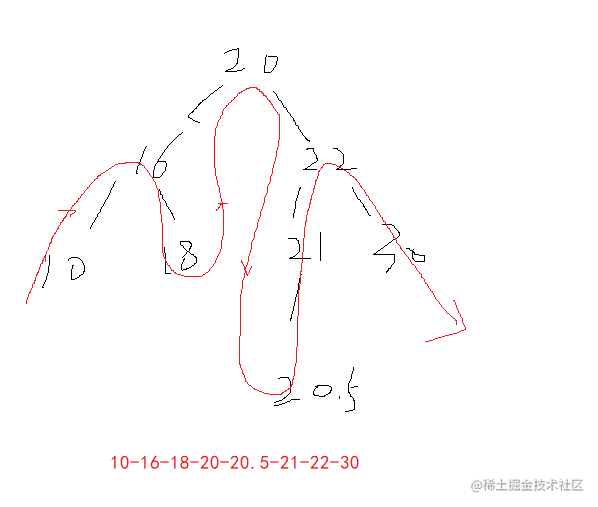 20
16 22
10 18 21 30
20.5
10-16-18-20-20.5-21-22-30
@稀土掘金技术社区